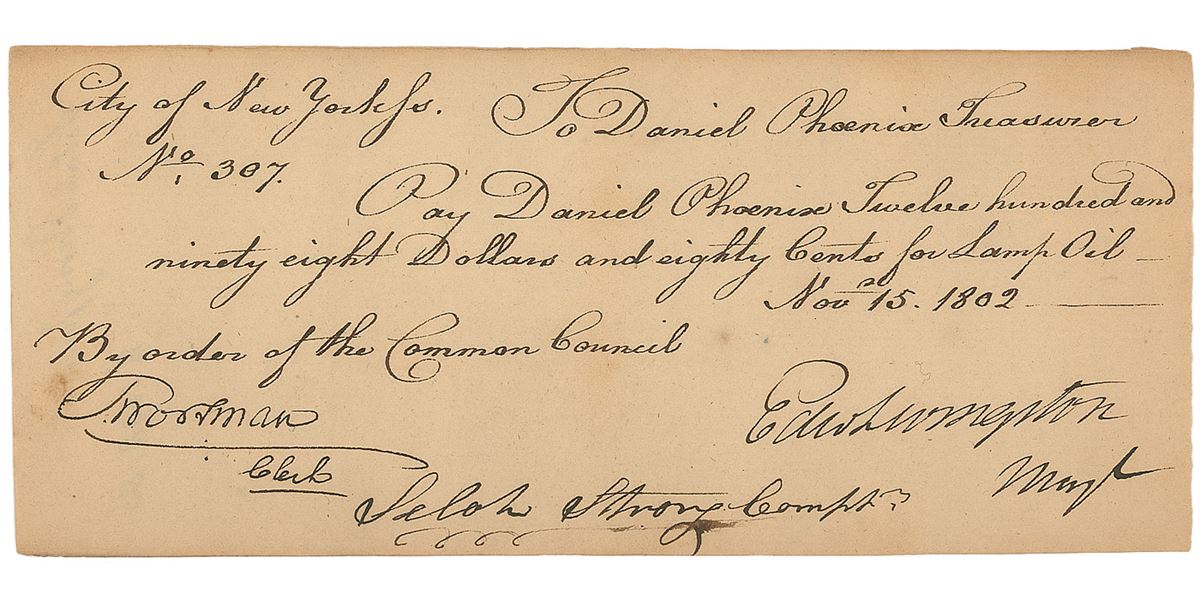 City of New York ſs. To Daniel Phœnix Treasurer
No. 307.
Pay Daniel Phœnix Twelve hundred and
ninety eight Dollars and eighty Cents for Lamp Oil
Novr 15. 1802
By order of the Common Council
T. Wortman
Clerk
Edw Livingston
Mayr
Selah Strong Comptr